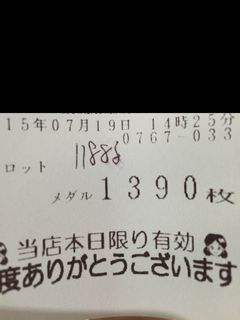 15年07月19日 14時25分
0767-033
ロット
メダル 1390枚
当店本日限り有効
度ありがとうございます